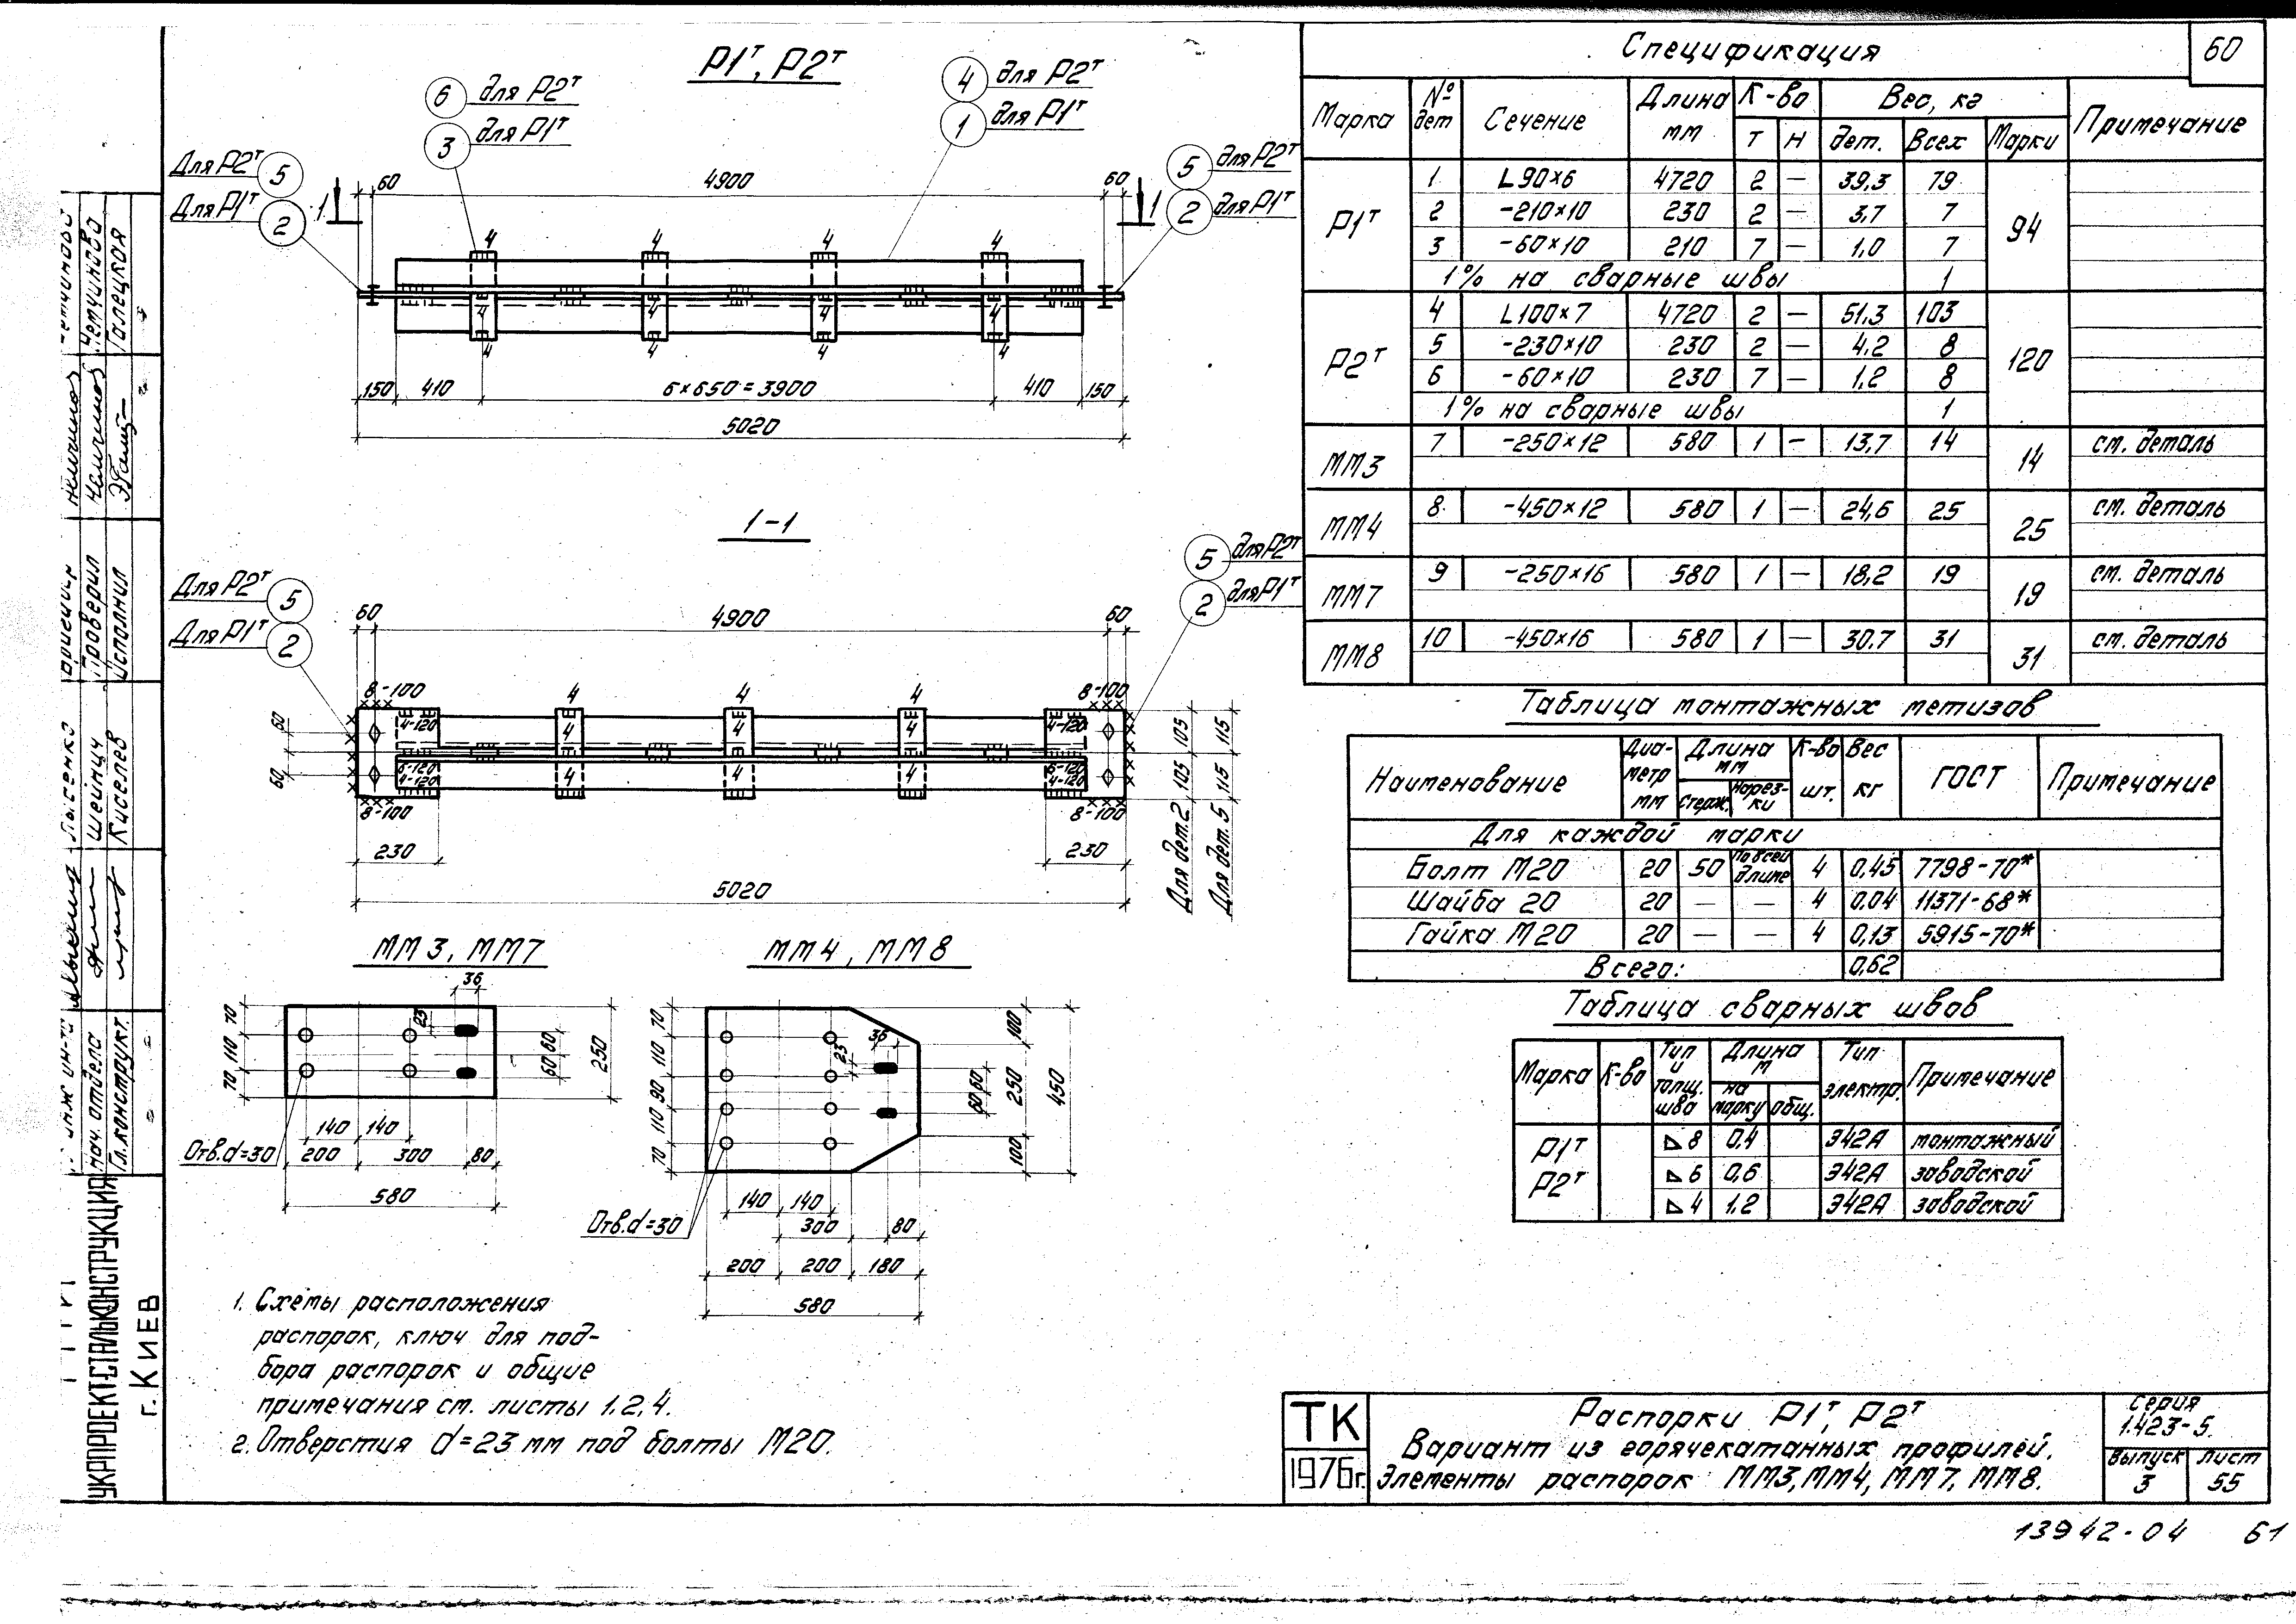 60
Р1ᵀ, Р2ᵀ
6 для Р2ᵀ
3 для Р1ᵀ
4 для Р2ᵀ
1 для Р1ᵀ
Для Р2ᵀ 5
Для Р1ᵀ 2
5 для Р2ᵀ
2 для Р1ᵀ
60 4900 60
1 1
4 4 4 4
4 4 4 4
4 4 4 4
150 410 6×650=3900 410 150
5020
1-1
Для Р2ᵀ 5
Для Р1ᵀ 2
5 для Р2ᵀ
2 для Р1ᵀ
60 4900 60
8-100 4 4 4 8-100
4-120 4 4 4 4-120
6-120 6-120
4-120 4 4 4 4-120
8-100 8-100
60 60
105 105 Для дет. 2
115 115 Для дет. 5
230 230
5020
ММ3, ММ7
36
23
70 110 70
60 60
250
140 140
Отв. d=30 200 300 80
580
ММ4, ММ8
36
23
70 110 90 110 70
60 60
100 250 100
450
140 140
Отв. d=30 300 80
200 200 180
580
1. Схемы расположения
распорок, ключ для под-
бора распорок и общие
примечания см. листы 1.2,4.
2. Отверстия d=23 мм под болты М20.
Спецификация
Марка № дет Сечение Длина мм К-во Вес, кг Примечание
Т Н дет. Всех Марки
Р1ᵀ 1 L90×6 4720 2 — 39,3 79 94
2 -210×10 230 2 — 3,7 7
3 -60×10 210 7 — 1,0 7
1% на сварные швы 1
Р2ᵀ 4 L100×7 4720 2 — 51,3 103 120
5 -230×10 230 2 — 4,2 8
6 -60×10 230 7 — 1,2 8
1% на сварные швы 1
ММ3 7 -250×12 580 1 — 13,7 14 14 см. деталь
ММ4 8 -450×12 580 1 — 24,6 25 25 см. деталь
ММ7 9 -250×16 580 1 — 18,2 19 19 см. деталь
ММ8 10 -450×16 580 1 — 30.7 31 31 см. деталь
Таблица монтажных метизов
Наименование Диаметр мм Длина мм К-во шт. Вес кг ГОСТ Примечание
Стерж. Нарезки
Для каждой марки
Болт М20 20 50 По всей длине 4 0,45 7798-70*
Шайба 20 20 — — 4 0.04 11371-68*
Гайка М20 20 — — 4 0,13 5915-70*
Всего: 0,62
Таблица сварных швов
Марка К-во Тип и толщ. шва Длина м Тип электр. Примечание
на марку общ.
Р1ᵀ Р2ᵀ ⊿8 0,4 Э42А монтажный
⊿6 0,6 Э42А заводской
⊿4 1.2 Э42А заводской
ТК
1976г.
Распорки Р1ᵀ, Р2ᵀ
Вариант из горячекатанных профилей.
Элементы распорок ММ3, ММ4, ММ7, ММ8.
Серия
1.423-5.
Выпуск 3
Лист 55
13942-04 61
УКРПРОЕКТСТАЛЬКОНСТРУКЦИЯ
г. Киев
нач. отдела Шейнцу
Гл. конструкт. Киселев
Проверил Немчинова
Исполнил Галецкая
Лысенко